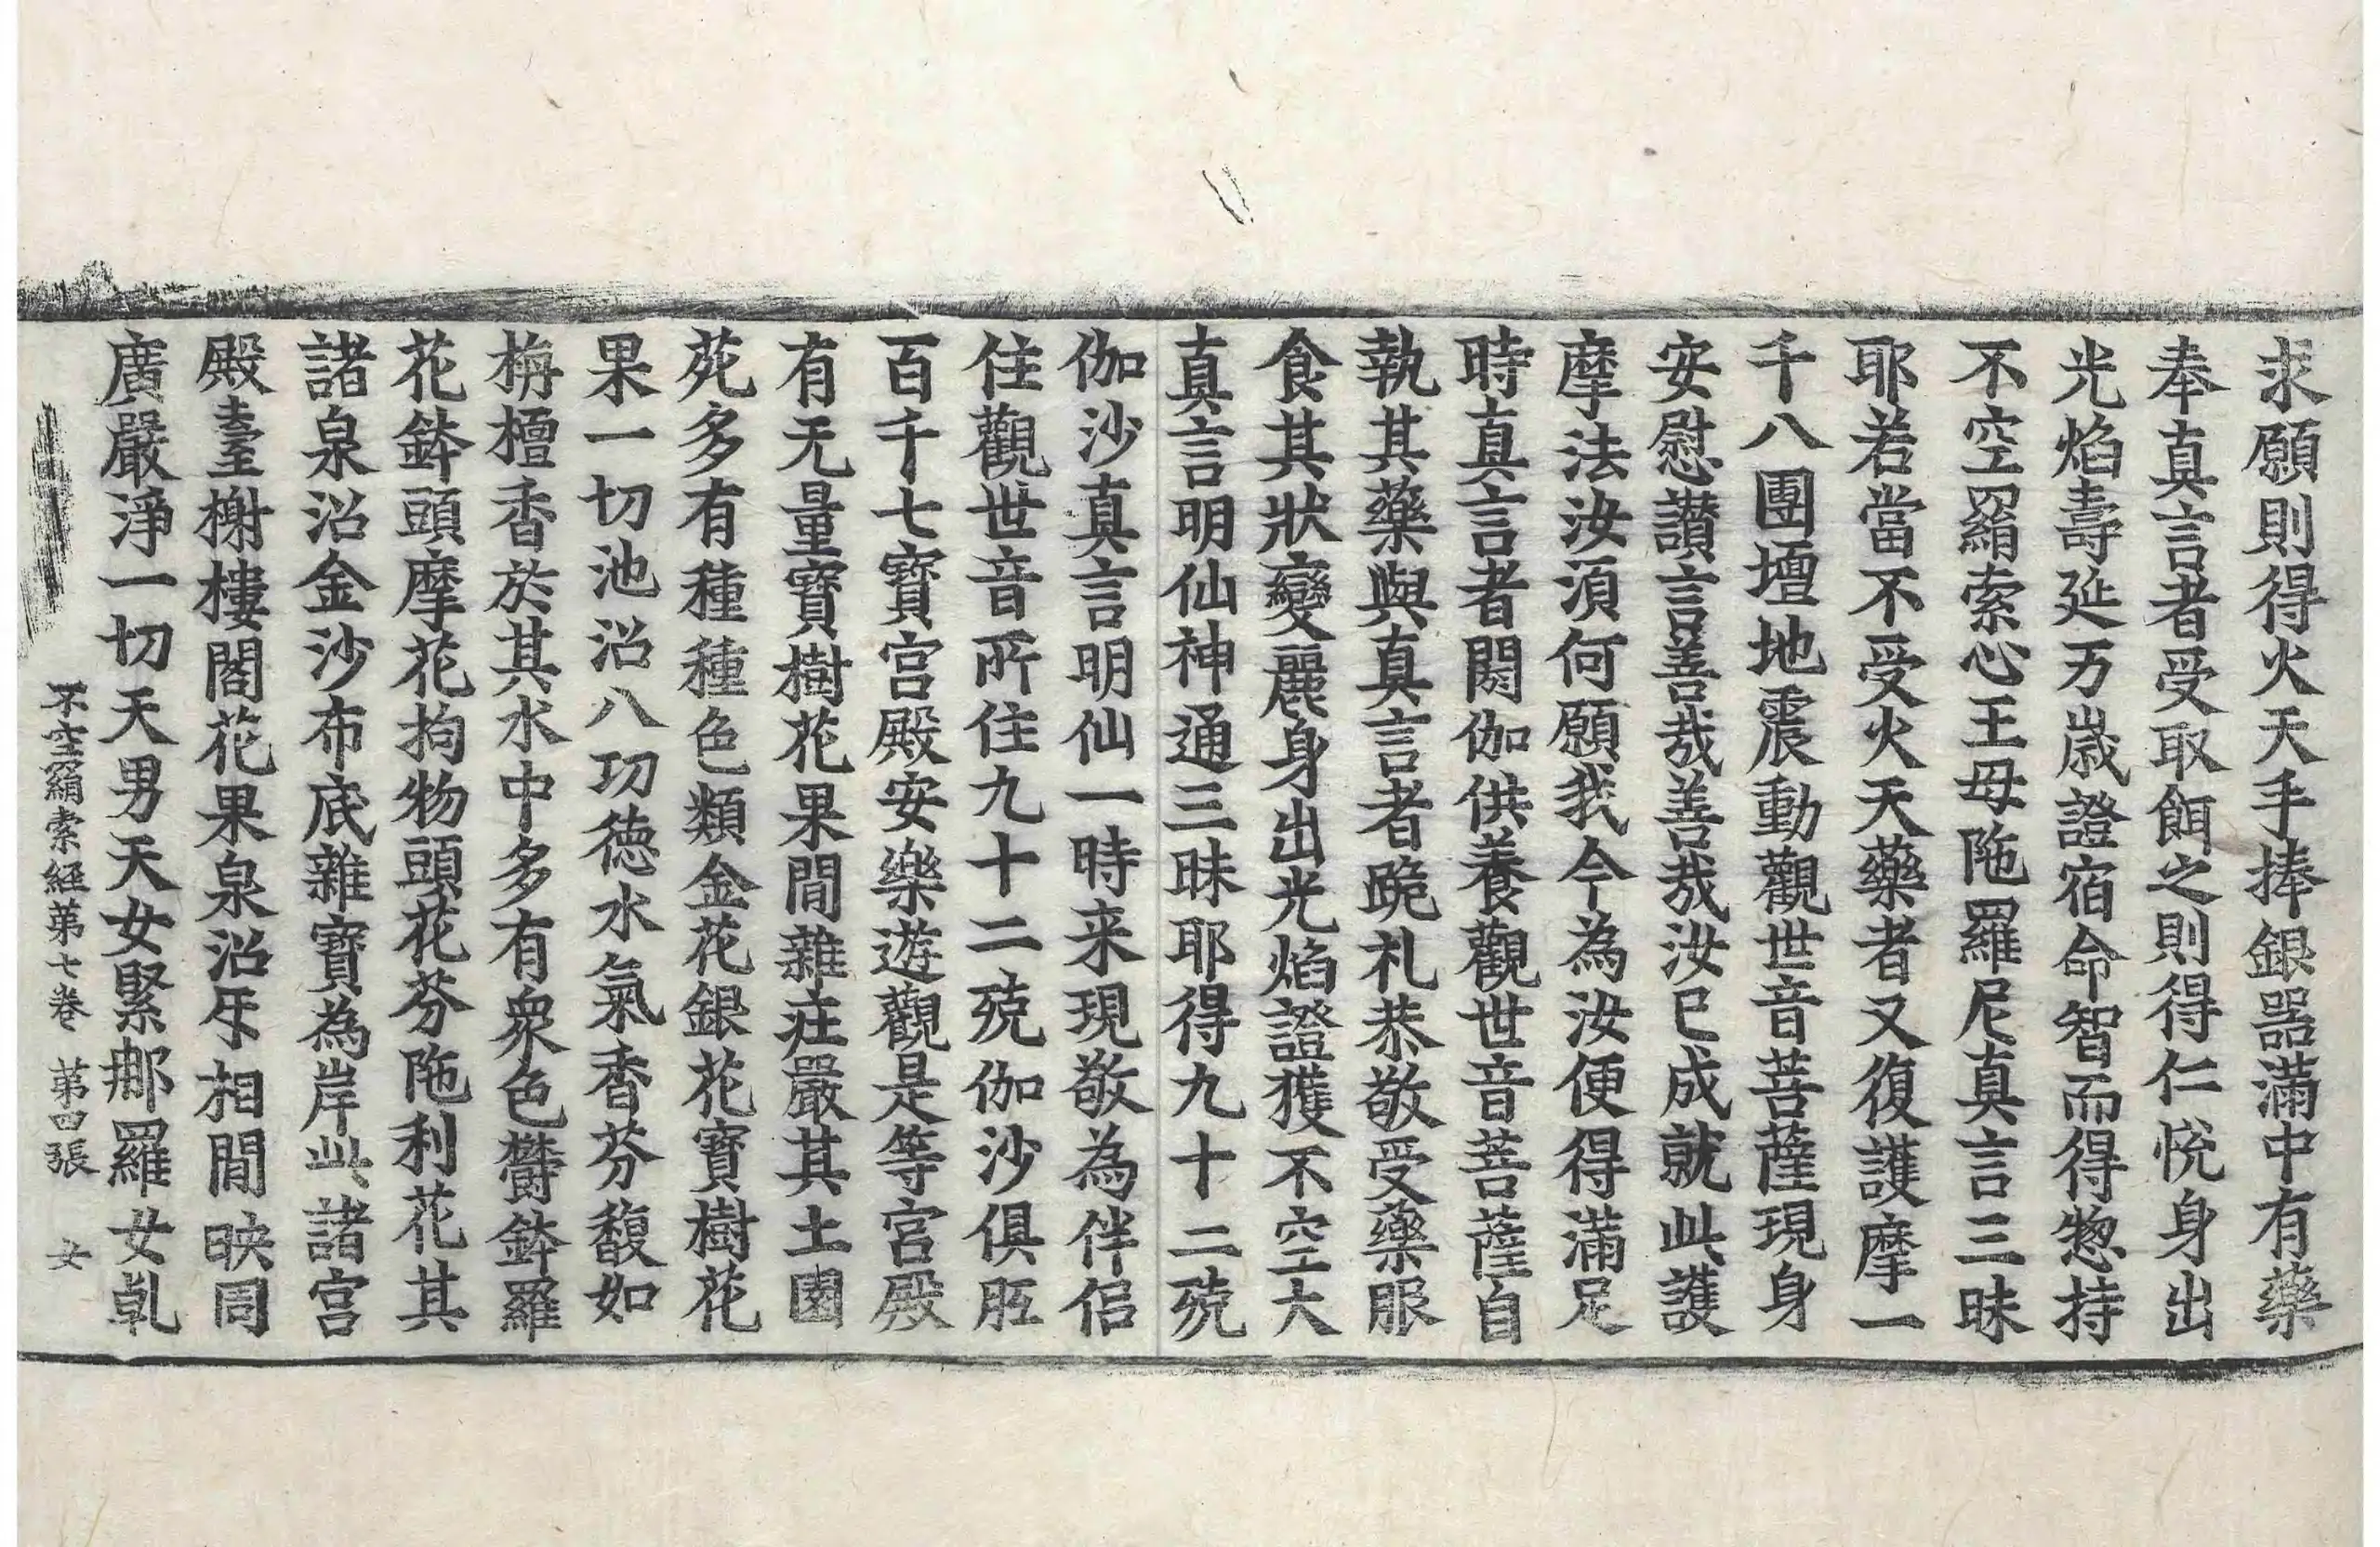 求願則得火天手捧銀器滿中有藥
奉真言者受取餌之則得仁悅身出
光焰壽延万歲證宿命智而得惣持
不空羂索心王母陁羅尼真言三昧
耶若當不受火天藥者又復護摩一
千八團壇地震動觀世音菩薩現身
安慰讚言善哉善哉汝已成就此護
摩法汝須何願我今為汝便得滿足
時真言者閼伽供養觀世音菩薩自
執其藥與真言者跪札恭敬受藥服
食其狀變麗身出光焰證獲不空大
真言明仙神通三昧耶得九十二殑
伽沙真言明仙一時来現敬為伴侣
住觀世音所住九十二殑伽沙俱胝
百千七寶宮殿安樂遊觀是等宮殿
有无量寶樹花果間雜莊嚴其土園
苑多有種種色類金花銀花寶樹花
果一切池沼八功德水氣香芬馥如
栴檀香於其水中多有衆色欝鉢羅
花鉢頭摩花拘物頭花芬陁利花其
諸泉沼金沙布底雜寶為岸此諸宮
殿臺榭樓閣花果泉沼牙相間映周
廣嚴淨一切天男天女緊那羅女乹
不空羂索経苐七卷 苐四張 女